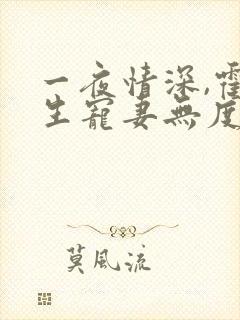 一夜情深,霍
生寵妻無度
莫風流